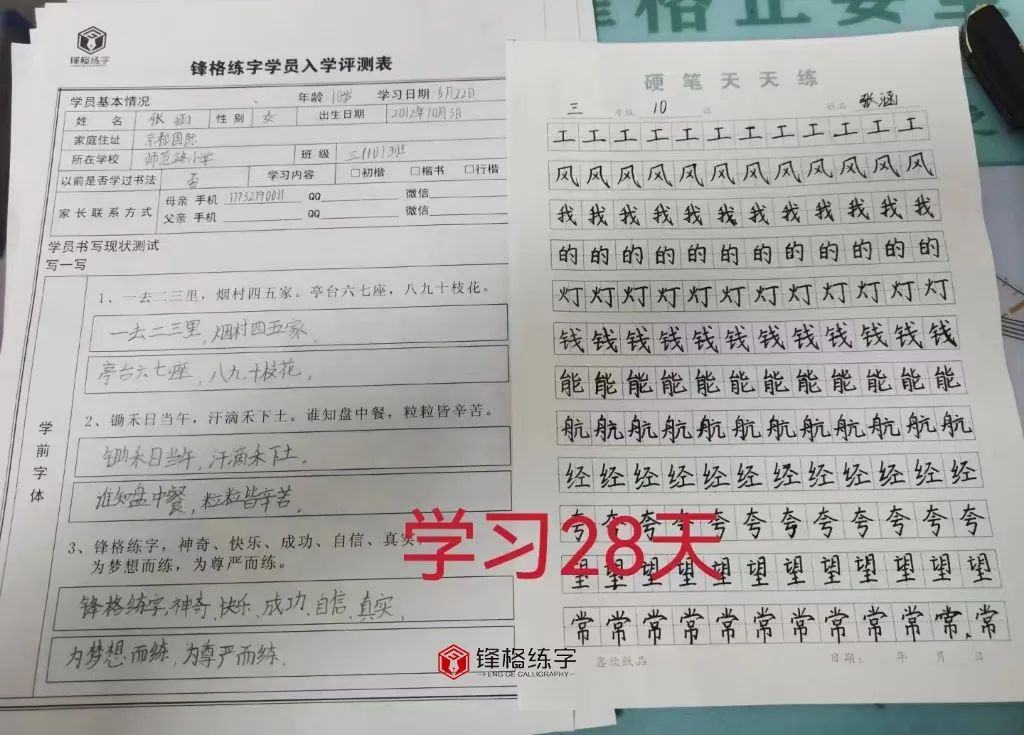 锋格正安堂
锋格练字
锋格练字学员入学评测表
学员基本情况 年龄 10岁 学习日期 5月22日
姓 名 张涵 性别 女 出生日期 2012年10月3日
家庭住址 京都国际
所在学校 师范路小学 班 级 三(10)班
以前是否学过书法 否 学习内容 □初楷 □楷书 □行楷
家长联系方式 母亲 手机 17732790011 QQ 微信
父亲 手机 QQ 微信
学员书写现状测试
写一写
学前字体
1、一去二三里,烟村四五家。亭台六七座,八九十枝花。
一去二三里,烟村四五家
亭台六七座,八九十枝花。
2、锄禾日当午,汗滴禾下土。谁知盘中餐,粒粒皆辛苦。
锄禾日当午,汗滴禾下土。
谁知盘中餐,粒粒皆辛苦。
3、锋格练字,神奇、快乐、成功、自信、真实、
为梦想而练,为尊严而练。
锋格练字,神奇、快乐、成功、自信、真实,
为梦想而练,为尊严而练.
硬笔天天练
三 年级 10 班 姓名 张涵
工工工工工工工工工工工
风风风风风风风风风风风
我我我我我我我我我我我
的的的的的的的的的的的
灯灯灯灯灯灯灯灯灯灯灯
钱钱钱钱钱钱钱钱钱钱钱
能能能能能能能能能能能
航航航航航航航航航航航
经经经经经经经经经经经
夸夸夸夸夸夸夸夸夸夸夸
望望望望望望望望望望望
常常常常常常常常常常常
鑫欣纸品 日期: 年 月 日
学习28天
锋格练字
FENG GE CALLIGRAPHY